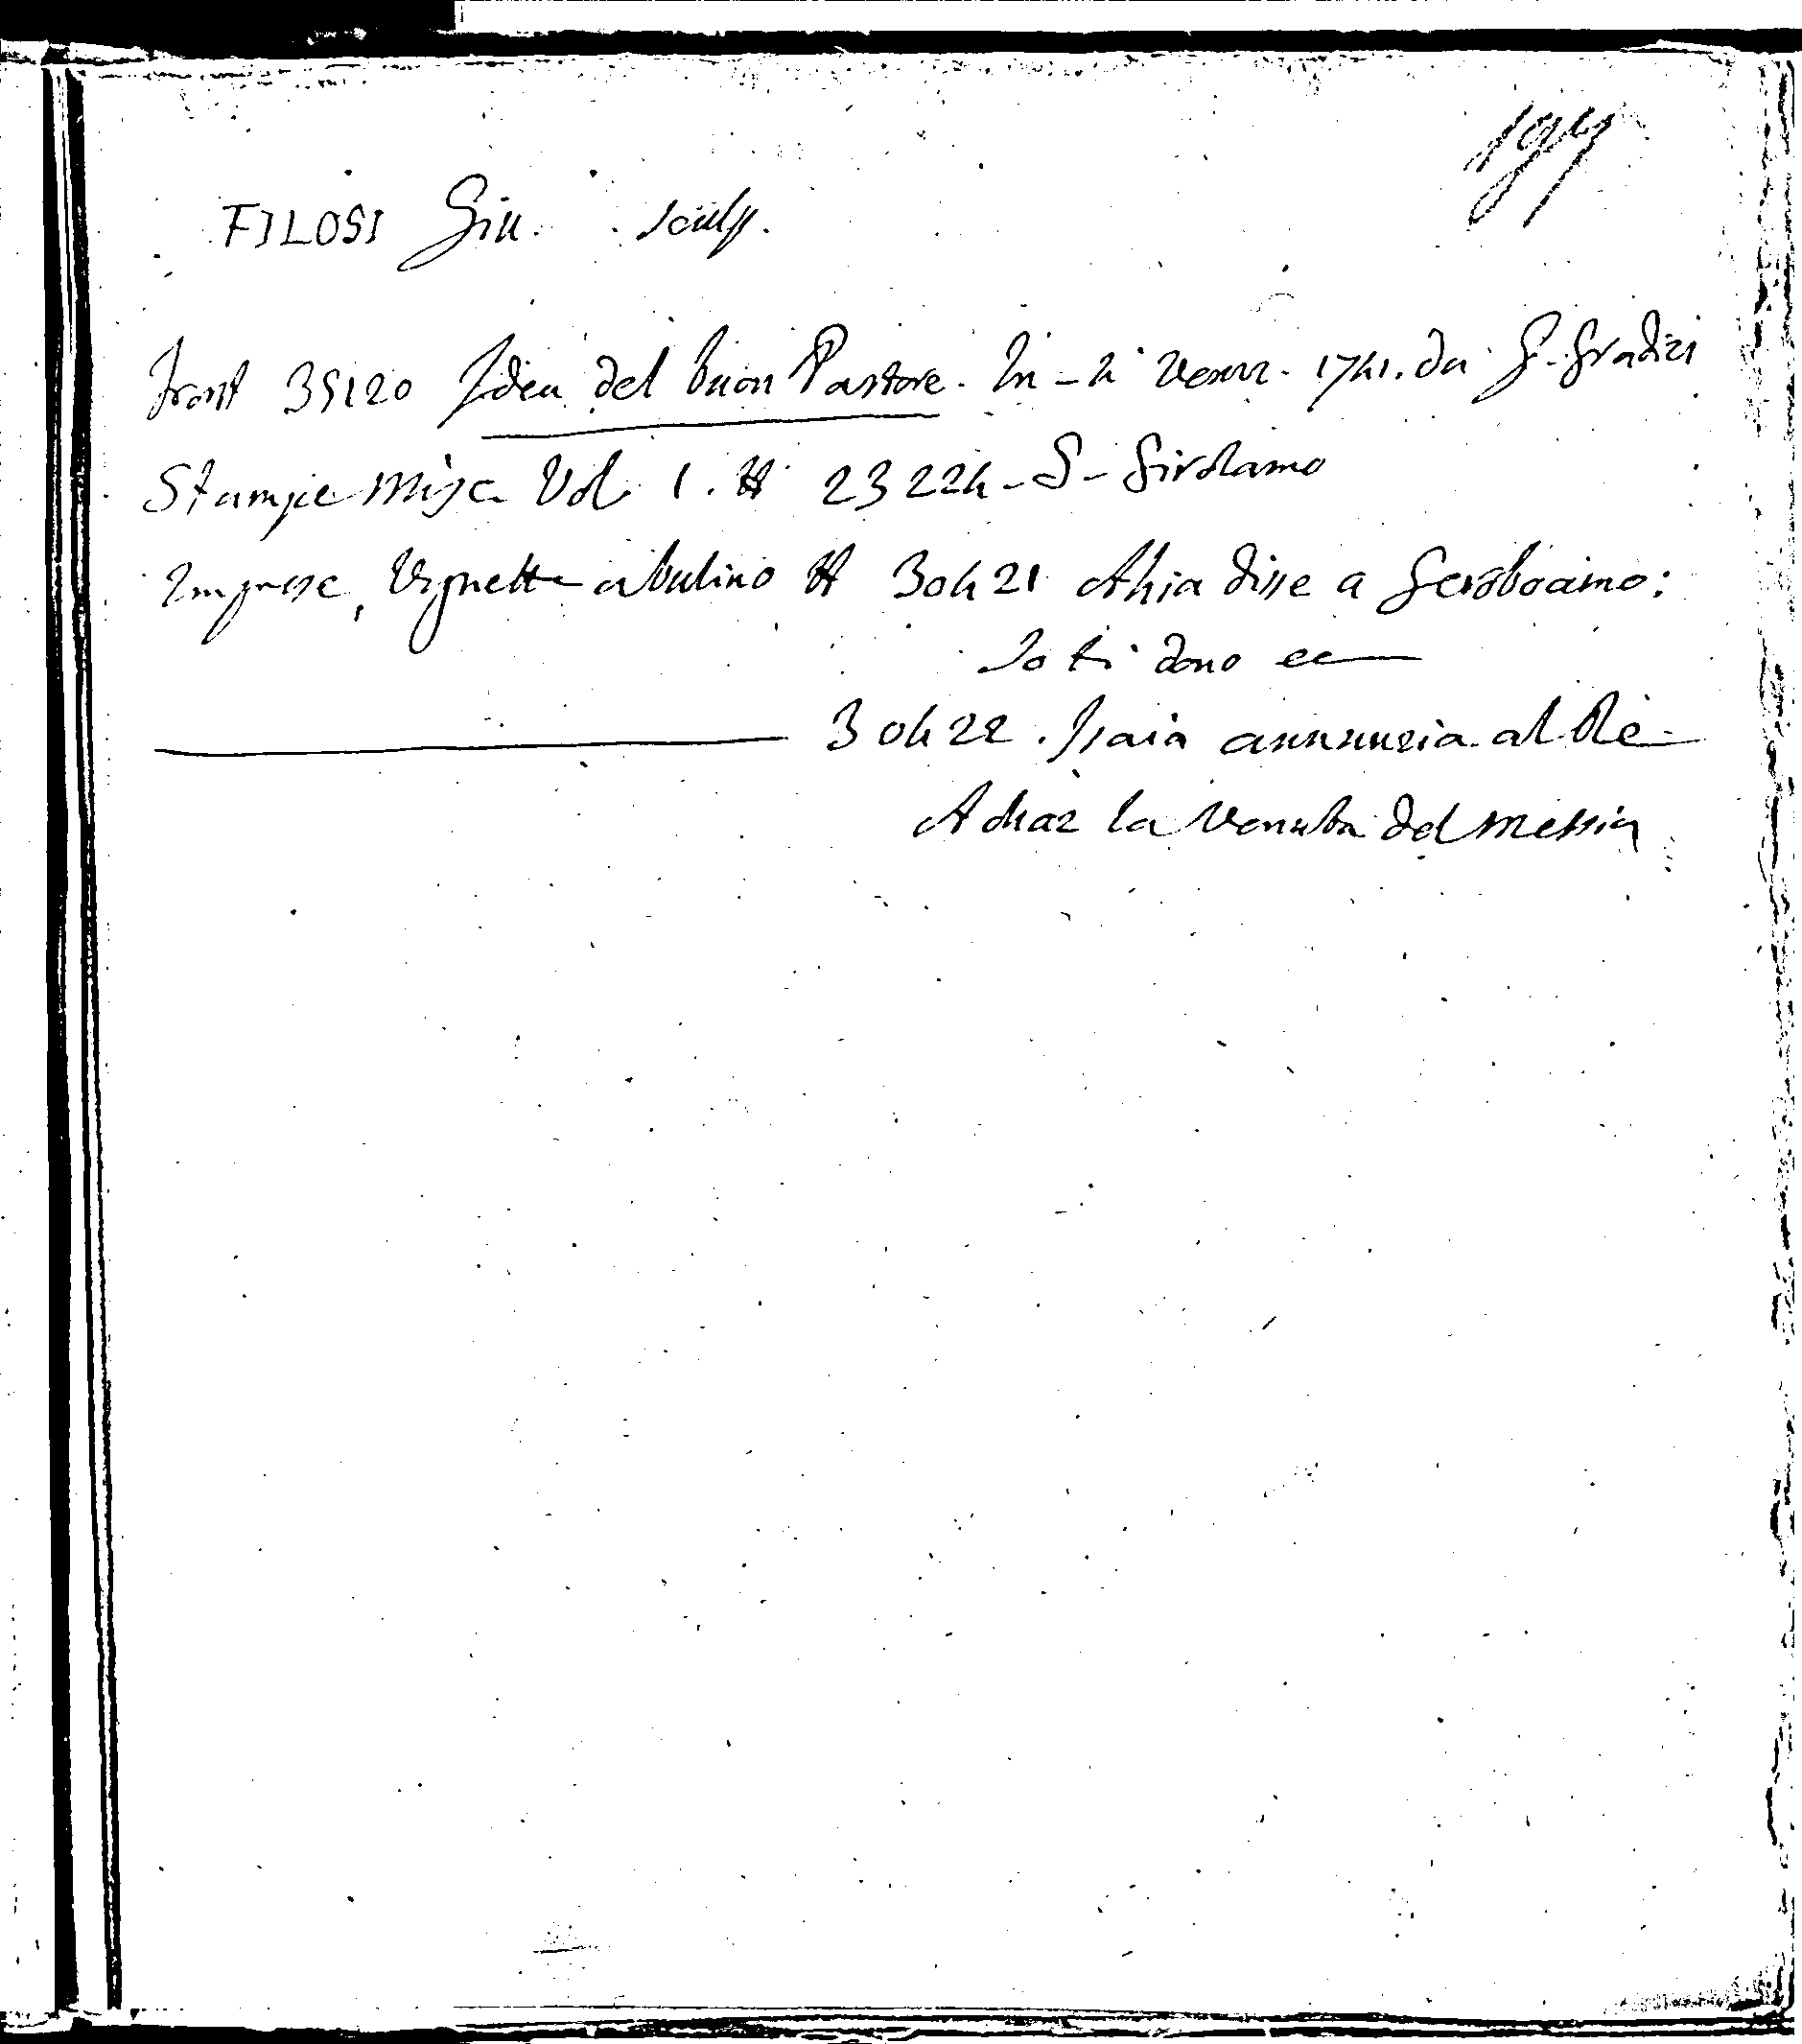 197
FILOSI Giu. sculp.
Front 35120 Idea del buon Pastore. In-4 Venez. 1741. da G. Gradizi
Stampe Misc. Vol. 1. # 23224 - S. Girolamo
Imprese, Vignette a bulino # 30421 Ahia disse a Geroboamo:
Io ti dono ec
30422. Isaia annunzia al Re
Achaz la venuta del Messia